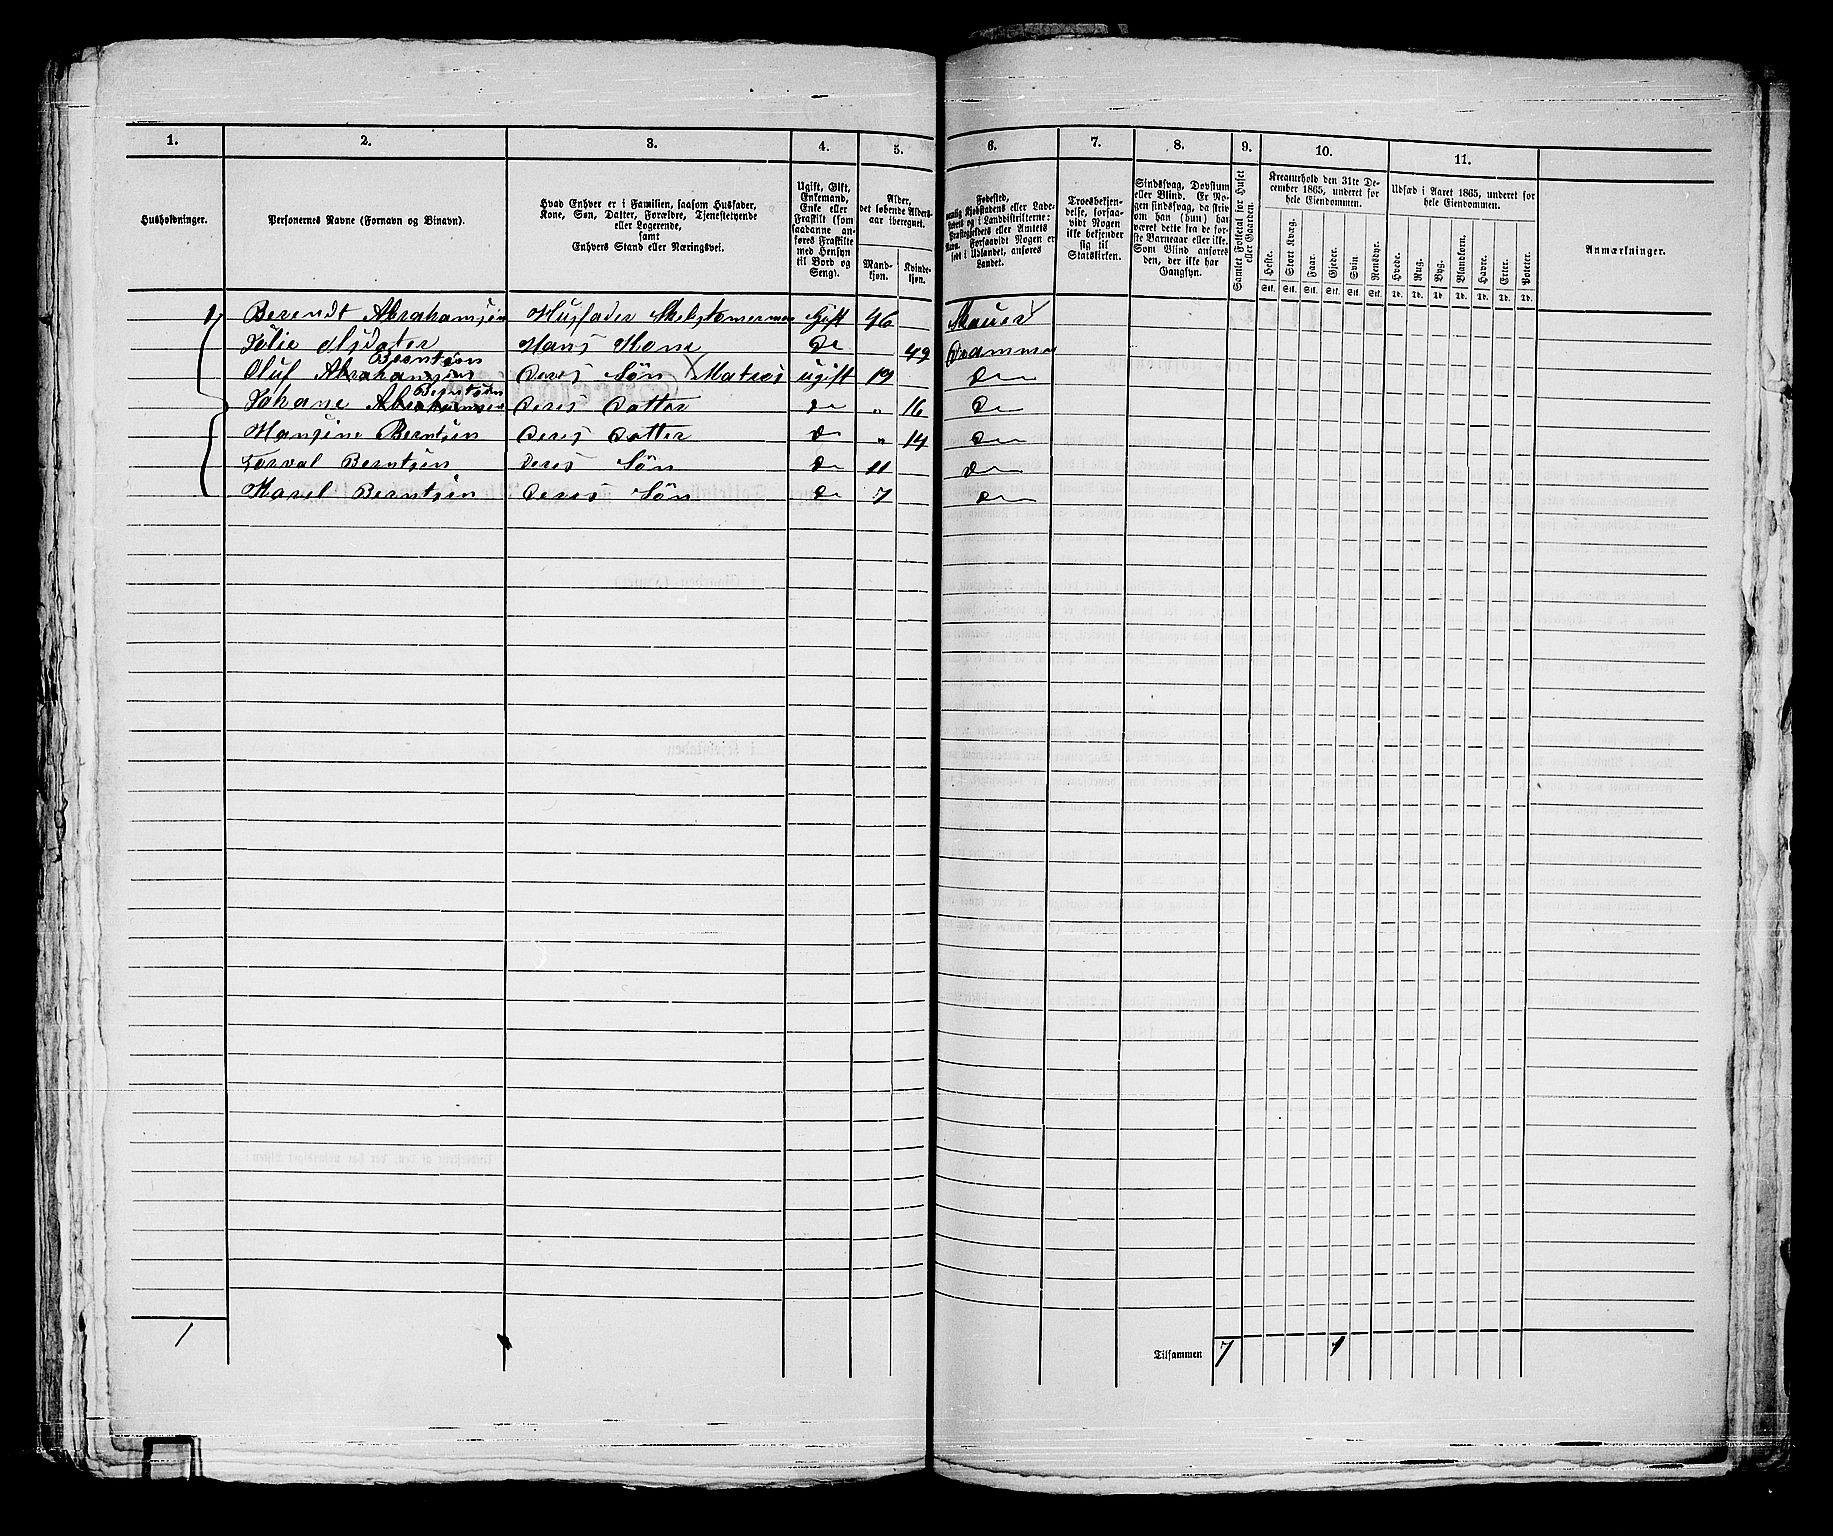 1. 2. 3. 4. 5. 6. 7. 8. 9. 10. 11.
Husholdninger.
Personernes Navne (Fornavn og Binavn).
Hvad Enhver er i Familien, saasom Husfader,
Kone, Søn, Datter, Forældre, Tjenestetyende
eller Logerende,
samt
Enhvers Stand eller Næringsvei.
Ugift, Gift,
Enkemand,
Enke eller
Fraskilt (som
saadanne an-
føres Fraskilte
med Hensyn
til Bord og
Seng).
Alder,
det løbende Alders-
aar iberegnet.
Mand-
kjøn.
Kvinde-
kjøn.
Fødested,
nemlig Kjøbstadens eller Lade-
stedets og i Landdistrikterne:
Præstegjeldets eller Amtets
Navn. Forsaavidt Nogen er
født i Udlandet, anføres
Landet.
Troesbekjen-
delse, forsaa-
vidt Nogen
ikke bekjender
sig til
Statskirken.
Sindssvag, Døvstum
eller Blind. Er No-
gen sindssvag, da skriv
om han (hun) har
været dette fra de før-
ste Barneaar eller ikke.
Som Blind anføres
den, der ikke har
Gangsyn.
Samlet Folketal for Huset
eller Gaarden.
Kreaturhold den 31te De-
cember 1865, underet for
hele Eiendommen.
Heste. Stort Kvæg. Faar. Gjeder. Svin. Rensdyr.
Stk. Stk. Stk. Stk. Stk. Stk.
Udsæd i Aaret 1865, underet for
hele Eiendommen.
Hvede. Rug. Byg. Blandkorn. Havre. Erter. Poteter.
Td. Td. Td. Td. Td. Td. Td.
Anmærkninger.
1 Berendt Abrahamsen Husfader Skibstømerman Gift 46 Skauer
Julie Alsdater Hans Kone do 49 Drammen
Berntsen
Oluf Abrahamsen Deres Søn Matros ugift 19 do
Berntsen
Johane Abrahamsen Deres Datter do " 16 do
Hansine Berntsen Deres Datter do " 14 do
Torval Berntsen Deres Søn do 11 do
Karel Berntsen Deres Søn do 7 do
1
Tilsammen 7 1